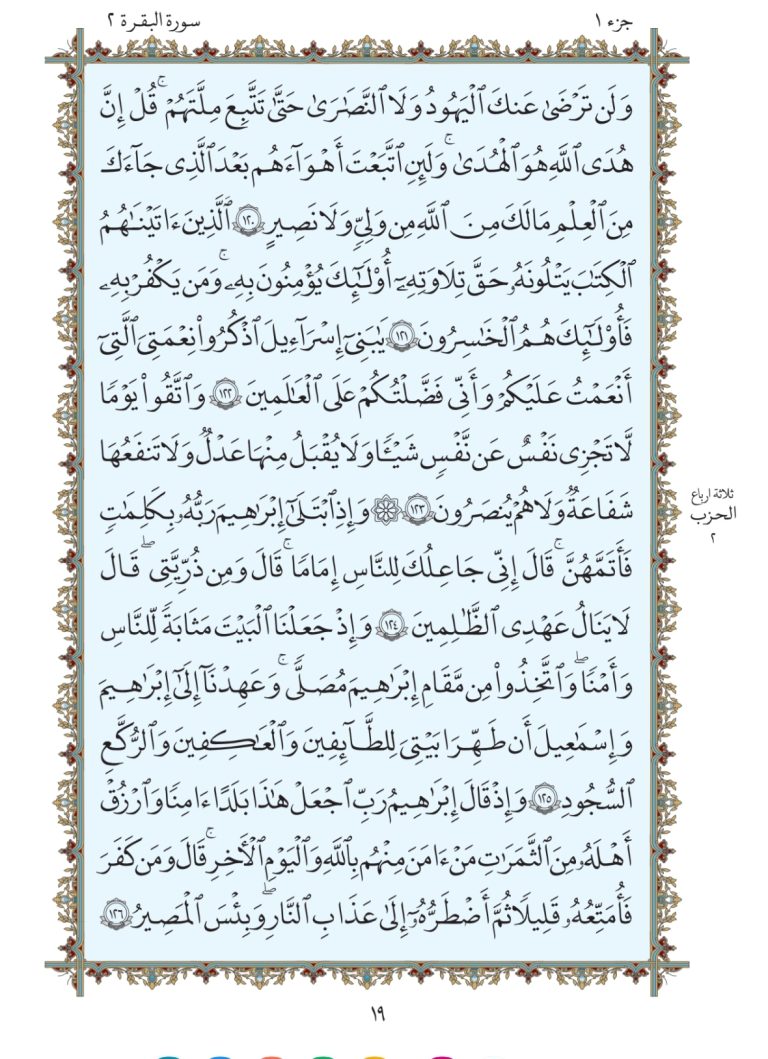 جزء ١
سورة البقرة ٢
وَلَن تَرْضَىٰ عَنكَ ٱلْيَهُودُ وَلَا ٱلنَّصَٰرَىٰ حَتَّىٰ تَتَّبِعَ مِلَّتَهُمْ ۗ قُلْ إِنَّ
هُدَى ٱللَّهِ هُوَ ٱلْهُدَىٰ ۗ وَلَئِنِ ٱتَّبَعْتَ أَهْوَآءَهُم بَعْدَ ٱلَّذِى جَآءَكَ
مِنَ ٱلْعِلْمِ مَا لَكَ مِنَ ٱللَّهِ مِن وَلِىٍّ وَلَا نَصِيرٍ ١٢٠ ٱلَّذِينَ ءَاتَيْنَٰهُمُ
ٱلْكِتَٰبَ يَتْلُونَهُۥ حَقَّ تِلَاوَتِهِۦٓ أُو۟لَٰٓئِكَ يُؤْمِنُونَ بِهِۦ ۗ وَمَن يَكْفُرْ بِهِۦ
فَأُو۟لَٰٓئِكَ هُمُ ٱلْخَٰسِرُونَ ١٢١ يَٰبَنِىٓ إِسْرَٰٓءِيلَ ٱذْكُرُوا۟ نِعْمَتِىَ ٱلَّتِىٓ
أَنْعَمْتُ عَلَيْكُمْ وَأَنِّى فَضَّلْتُكُمْ عَلَى ٱلْعَٰلَمِينَ ١٢٢ وَٱتَّقُوا۟ يَوْمًا
لَّا تَجْزِى نَفْسٌ عَن نَّفْسٍ شَيْـًٔا وَلَا يُقْبَلُ مِنْهَا عَدْلٌ وَلَا تَنفَعُهَا
شَفَٰعَةٌ وَلَا هُمْ يُنصَرُونَ ١٢٣ ۞ وَإِذِ ٱبْتَلَىٰٓ إِبْرَٰهِيمَ رَبُّهُۥ بِكَلِمَٰتٍ
فَأَتَمَّهُنَّ ۖ قَالَ إِنِّى جَاعِلُكَ لِلنَّاسِ إِمَامًا ۖ قَالَ وَمِن ذُرِّيَّتِى ۖ قَالَ
لَا يَنَالُ عَهْدِى ٱلظَّٰلِمِينَ ١٢٤ وَإِذْ جَعَلْنَا ٱلْبَيْتَ مَثَابَةً لِّلنَّاسِ
وَأَمْنًا ۖ وَٱتَّخِذُوا۟ مِن مَّقَامِ إِبْرَٰهِيمَ مُصَلًّى ۖ وَعَهِدْنَآ إِلَىٰٓ إِبْرَٰهِيمَ
وَإِسْمَٰعِيلَ أَن طَهِّرَا بَيْتِىَ لِلطَّآئِفِينَ وَٱلْعَٰكِفِينَ وَٱلرُّكَّعِ
ٱلسُّجُودِ ١٢٥ وَإِذْ قَالَ إِبْرَٰهِيمُ رَبِّ ٱجْعَلْ هَٰذَا بَلَدًا ءَامِنًا وَٱرْزُقْ
أَهْلَهُۥ مِنَ ٱلثَّمَرَٰتِ مَنْ ءَامَنَ مِنْهُم بِٱللَّهِ وَٱلْيَوْمِ ٱلْءَاخِرِ ۖ قَالَ وَمَن كَفَرَ
فَأُمَتِّعُهُۥ قَلِيلًا ثُمَّ أَضْطَرُّهُۥٓ إِلَىٰ عَذَابِ ٱلنَّارِ ۖ وَبِئْسَ ٱلْمَصِيرُ ١٢٦
ثلاثة ارباع
الحزب
٢
١٩